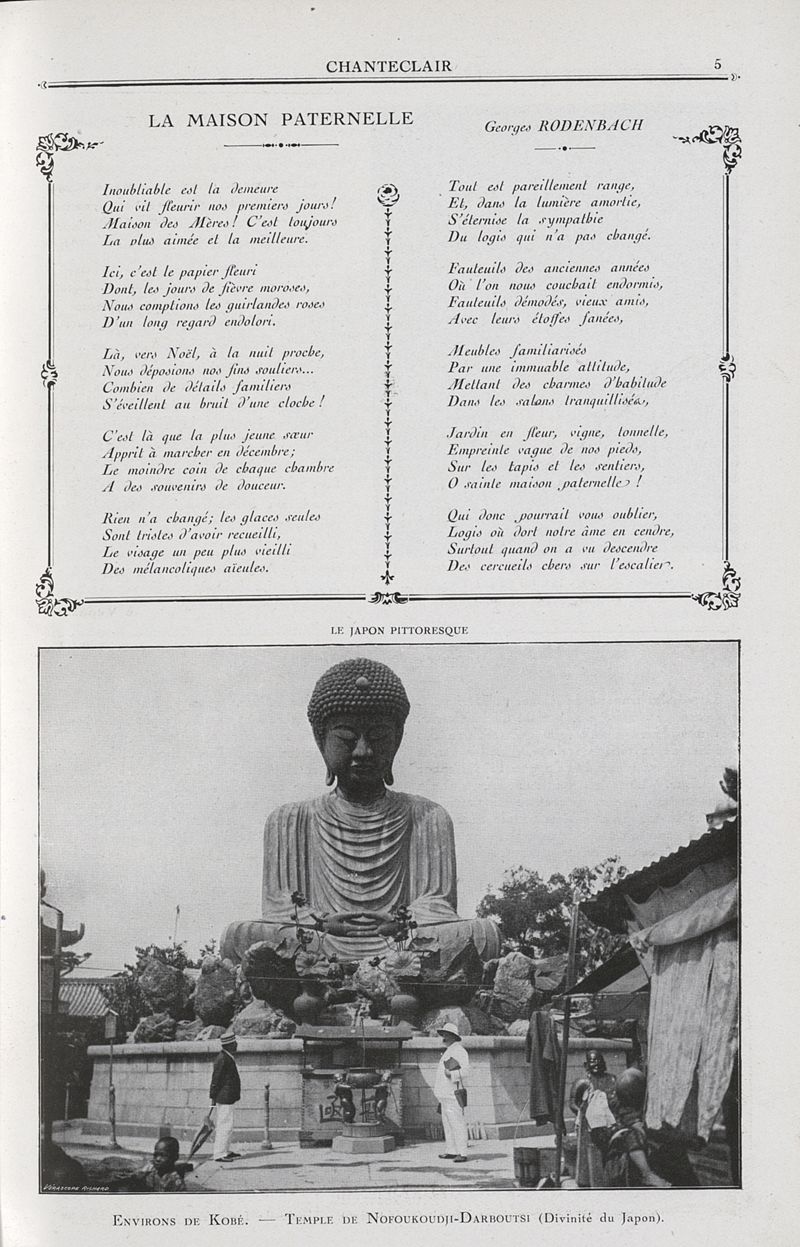 CHANTECLAIR
5
LA MAISON PATERNELLE
Georges RODENBACH
Inoubliable est la demeure
Qui vit fleurir nos premiers jours!
Maison des Mères! C'est toujours
La plus aimée et la meilleure.
Ici, c'est le papier fleuri
Dont, les jours de fièvre moroses,
Nous comptions les guirlandes roses
D'un long regard endolori.
Là, vers Noël, à la nuit proche,
Nous déposions nos fins souliers...
Combien de détails familiers
S'éveillent au bruit d'une cloche!
C'est là que la plus jeune sœur
Apprit à marcher en décembre;
Le moindre coin de chaque chambre
A des souvenirs de douceur.
Rien n'a changé; les glaces seules
Sont tristes d'avoir recueilli,
Le visage un peu plus vieilli
Des mélancoliques aïeules.
Tout est pareillement rangé,
Et, dans la lumière amortie,
S'éternise la sympathie
Du logis qui n'a pas changé.
Fauteuils des anciennes années
Où l'on nous couchait endormis,
Fauteuils démodés, vieux amis,
Avec leurs étoffes fanées,
Meubles familiarisés
Par une immuable attitude,
Mettant des charmes d'habitude
Dans les salons tranquillisés,
Jardin en fleur, vigne, tonnelle,
Empreinte vague de nos pieds,
Sur les tapis et les sentiers,
O sainte maison paternelle!
Qui donc pourrait vous oublier,
Logis où dort notre âme en cendre,
Surtout quand on a vu descendre
Des cercueils chers sur l'escalier.
LE JAPON PITTORESQUE
VÉRASCOPE RICHARD
ENVIRONS DE KOBÉ. — TEMPLE DE NOFOUKOUDJI-DARBOUTSI (Divinité du Japon).